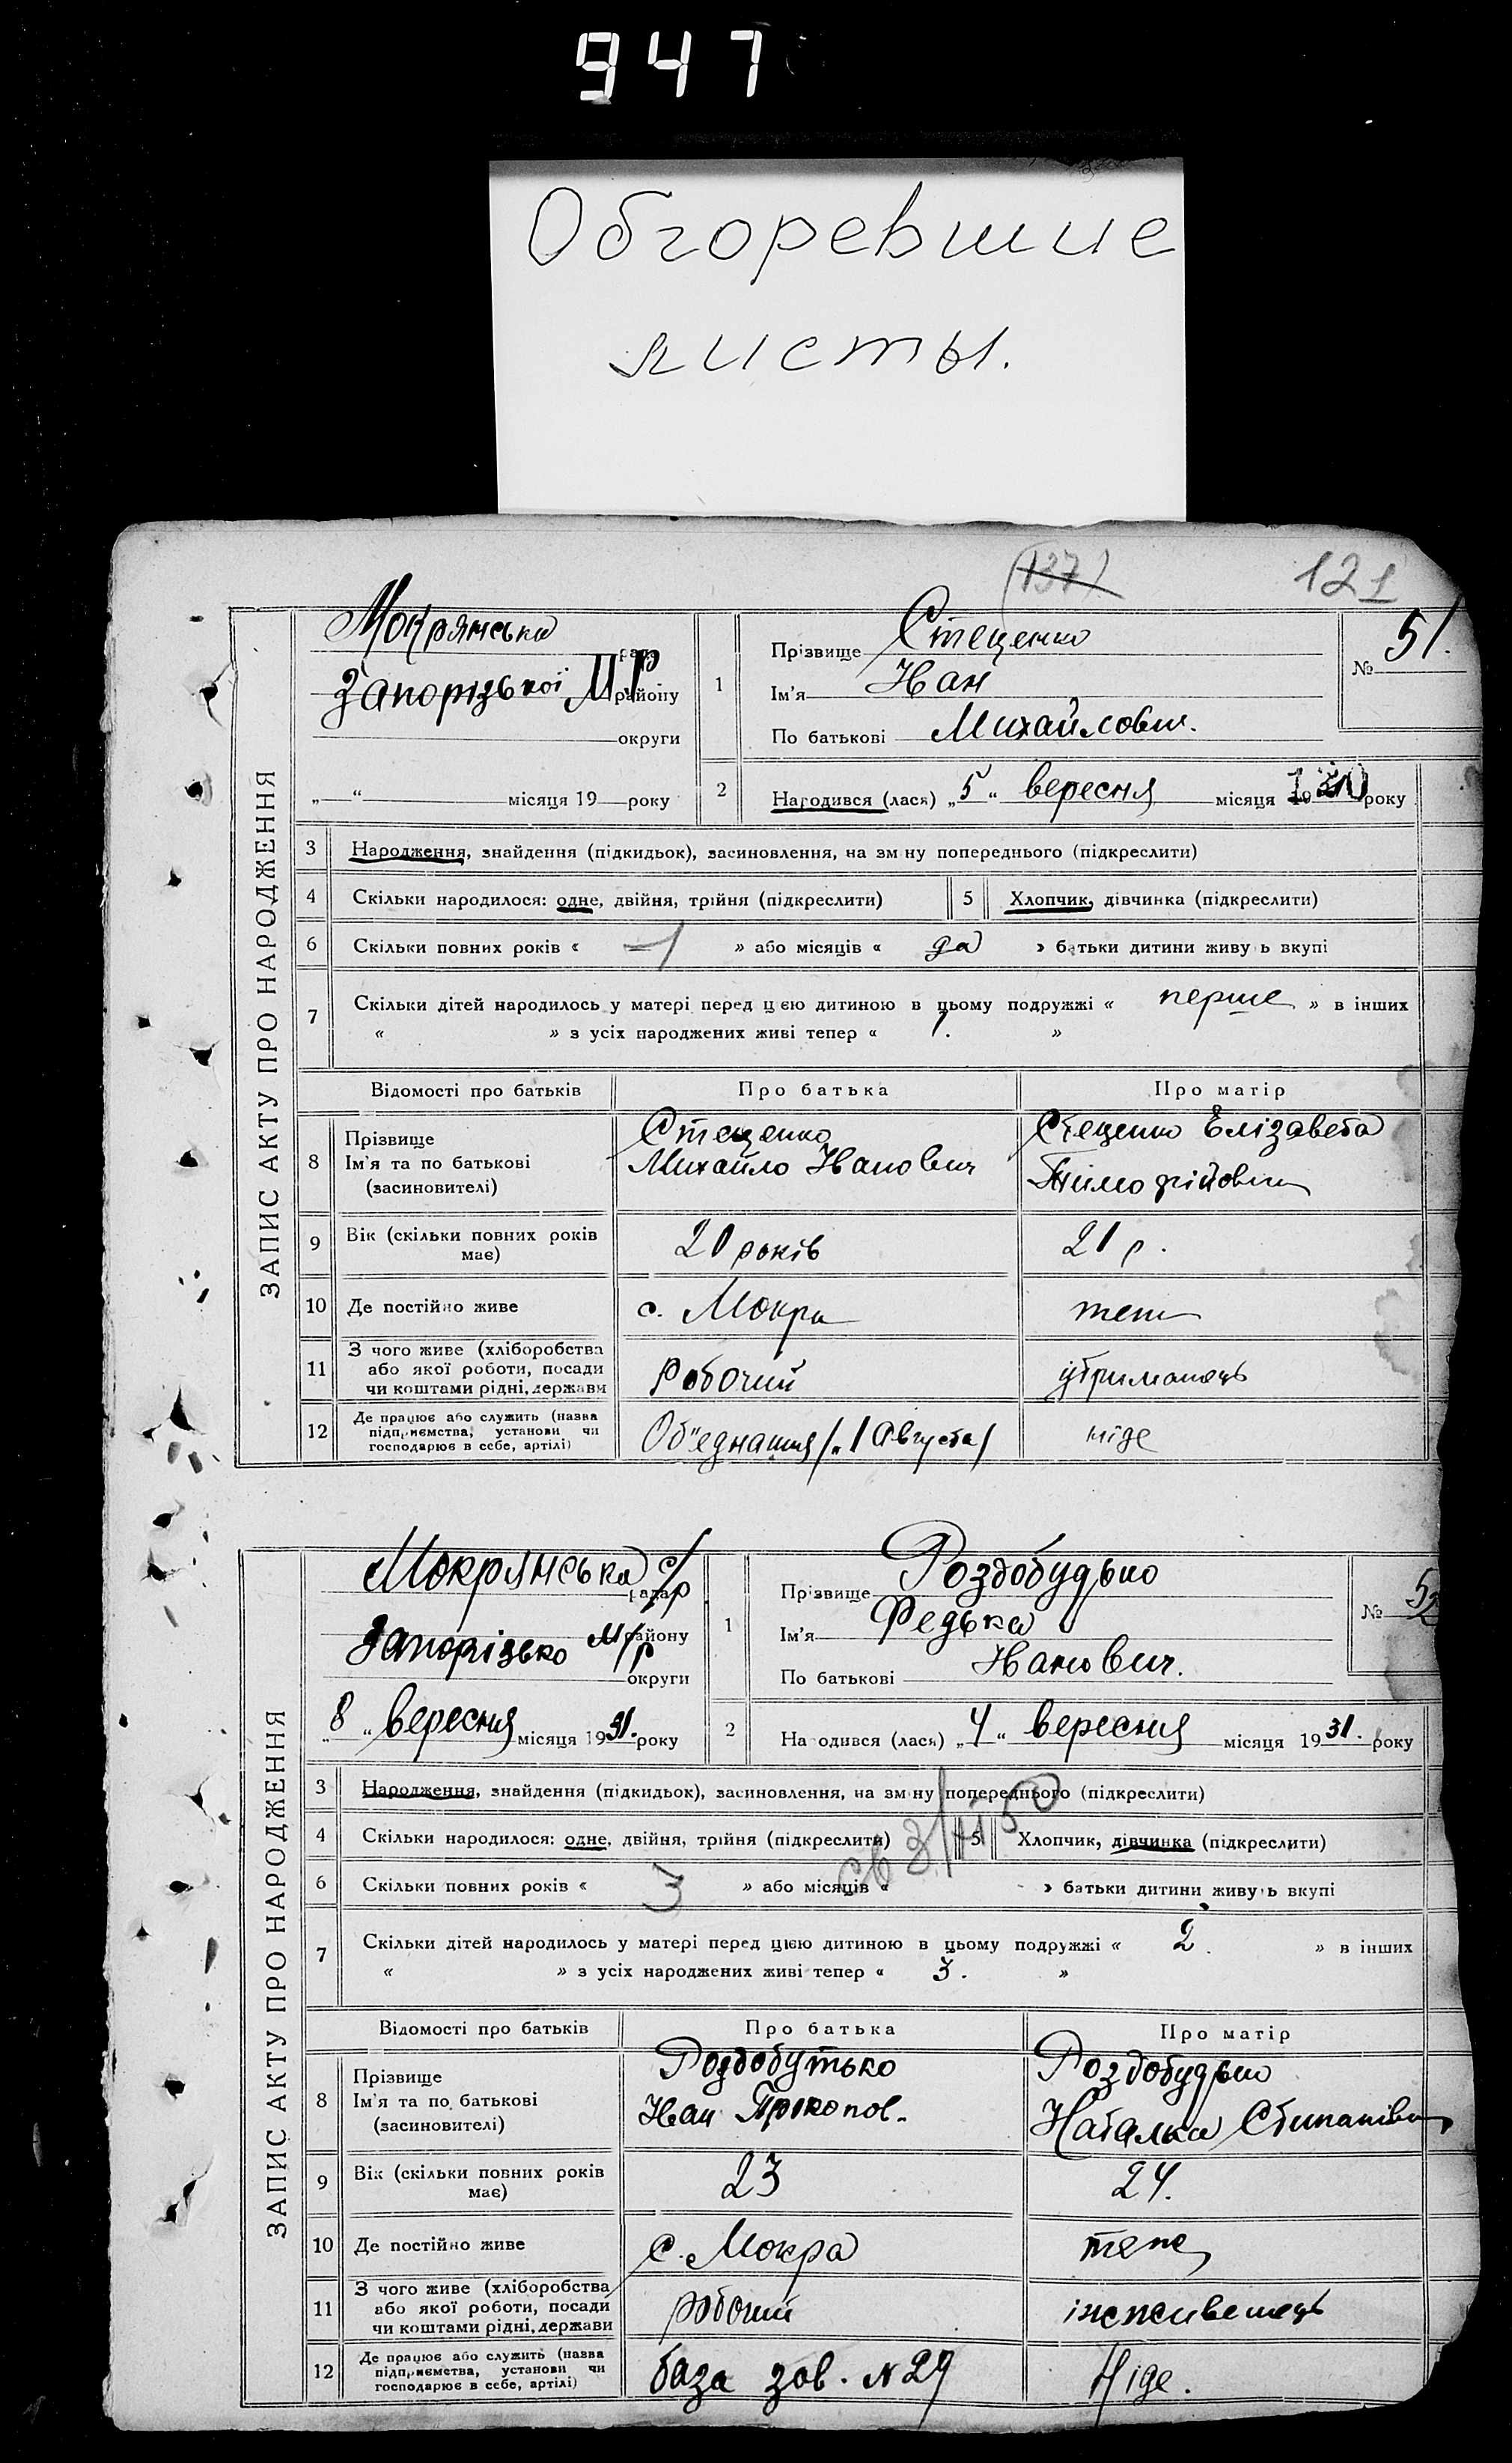 947
Обгоревшие
листы.
(137) 121
ЗАПИС АКТУ ПРО НАРОДЖЕННЯ
Мокрянська
рада
Запорізької М/Р.
району
округи
„ “ місяця 19 року
1
Прізвище Стеценко
Ім'я Иван
По батькові Михайлович.
№ 51.
2
Народився (лася) „5“ вересня місяця року
3 Народження, знайдення (підкидьок), засиновлення, на зм ну попереднього (підкреслити)
4 Скільки народилося: одне, двійня, трійня (підкреслити) 5 Хлопчик, дівчинка (підкреслити)
6 Скільки повних років « 1 » або місяців « да » батьки дитини живу ь вкупі
7 Скільки дітей народилось у матері перед цією дитиною в цьому подружжі « перше » в інших
« » з усіх народжених живі тепер « 1. »
Відомості про батьків Про батька Про матір
8 Прізвище
Ім'я та по батькові
(засиновителі)
Стеценко
Михайло Иванович
Стеценко Елізавета
9 Вік (скільки повних років
має)
20 років 21 р.
10 Де постійно живе с. Мокра теж
11 З чого живе (хліборобства
або якої роботи, посади
чи коштами рідні, держави
Робочий утриманець
12 Де працює або служить (назва
підприємства, установи чи
господарює в себе, артілі)
Об"еднання /„1 Августа/ ніде
ЗАПИС АКТУ ПРО НАРОДЖЕННЯ
Мокрянська с/р
рада
Запорізько М/р
району
округи
„8“ вересня місяця 1931. року
1
Прізвище Роздобудько
Ім'я Федька
По батькові Иванович.
№ 52
2
На одився (лася) „4“ вересня місяця 1931. року
3 Народження, знайдення (підкидьок), засиновлення, на зм ну попереднього (підкреслити)
4 Скільки народилося: одне, двійня, трійня (підкреслити) 5 Хлопчик, дівчинка (підкреслити)
6 Скільки повних років « 3 » або місяців « » батьки дитини живу ь вкупі
7 Скільки дітей народилось у матері перед цією дитиною в цьому подружжі « 2. » в інших
« » з усіх народжених живі тепер « 3. »
Відомості про батьків Про батька Про матір
8 Прізвище
Ім'я та по батькові
(засиновителі)
Роздобутько
Иван Прокопов.
Роздобудько
Наталка
9 Вік (скільки повних років
має)
23 24.
10 Де постійно живе с. Мокра теж
11 З чого живе (хліборобства
або якої роботи, посади
чи коштами рідні, держави
робочий іждивенець
12 Де працює або служить (назва
підприємства, установи чи
господарює в себе, артілі)
база зав. № 29 Ніде.